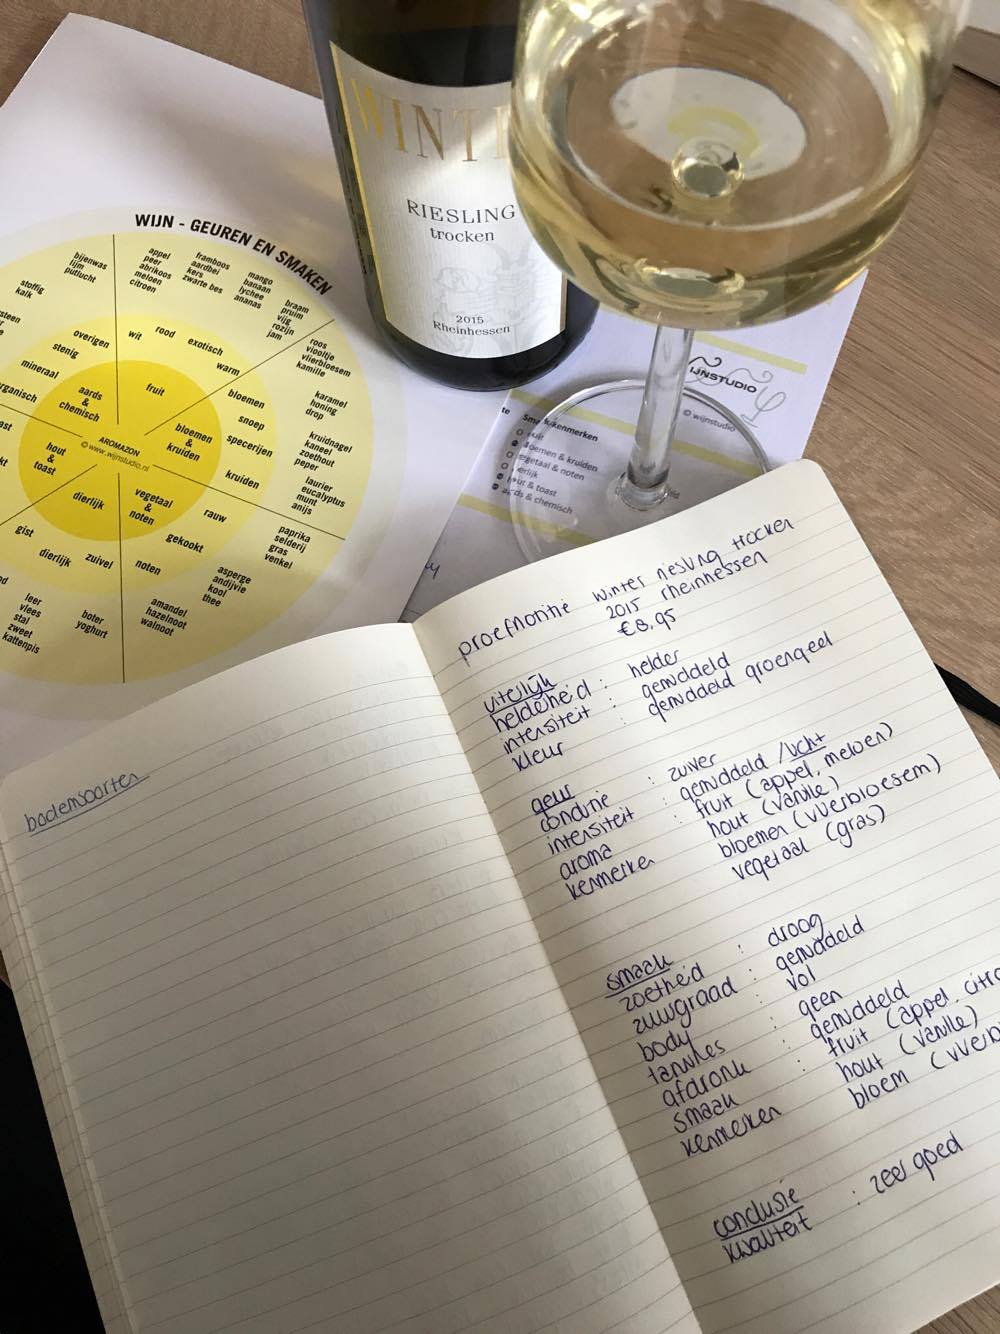 WIJN - GEUREN EN SMAKEN
bijenwas
lijm
putlucht
stoffig
kalk
appel
peer
abrikoos
meloen
citroen
framboos
aardbei
kers
zwarte bes
mango
banaan
lychee
ananas
braam
pruim
vijg
rozijn
jam
roos
viooltje
vlierbloesem
kamille
karamel
honing
drop
kruidnagel
kaneel
zoethout
peper
laurier
eucalyptus
munt
anijs
paprika
selderij
gras
venkel
asperge
andijvie
kool
thee
amandel
hazelnoot
walnoot
boter
yoghurt
leer
vlees
stal
zweet
kattenpis
overigen
stenig
mineraal
wit
rood
exotisch
warm
bloemen
snoep
specerijen
kruiden
rauw
gekookt
noten
zuivel
dierlijk
gist
aards
&
chemisch
fruit
bloemen
&
kruiden
vegetaal
&
noten
dierlijk
hout
&
toast
AROMAZON
© www.wijnstudio.nl
RIESLING
trocken
2015
Rheinhessen
IJNSTUDIO
© wijnstudio
& kruiden
& noten
& toast
& chemisch
proefnotitie winter riesling trocken
2015 rheinhessen
€8,95
uiterlijk
helderheid : helder
intensiteit : gemiddeld
kleur : gemiddeld groengeel
geur
conditie : zuiver
intensiteit : gemiddeld / licht
aroma : fruit (appel, meloen)
kenmerken hout (vanille)
bloemen (vlierbloesem)
vegetaal (gras)
smaak
zoetheid : droog
zuurgraad : gemiddeld
body : vol
tannines : geen
afdronk : gemiddeld
smaak : fruit (appel, citro
kenmerken hout (vanille)
bloem (vlierb
conclusie
kwaliteit : zeer goed
bodemsoorten